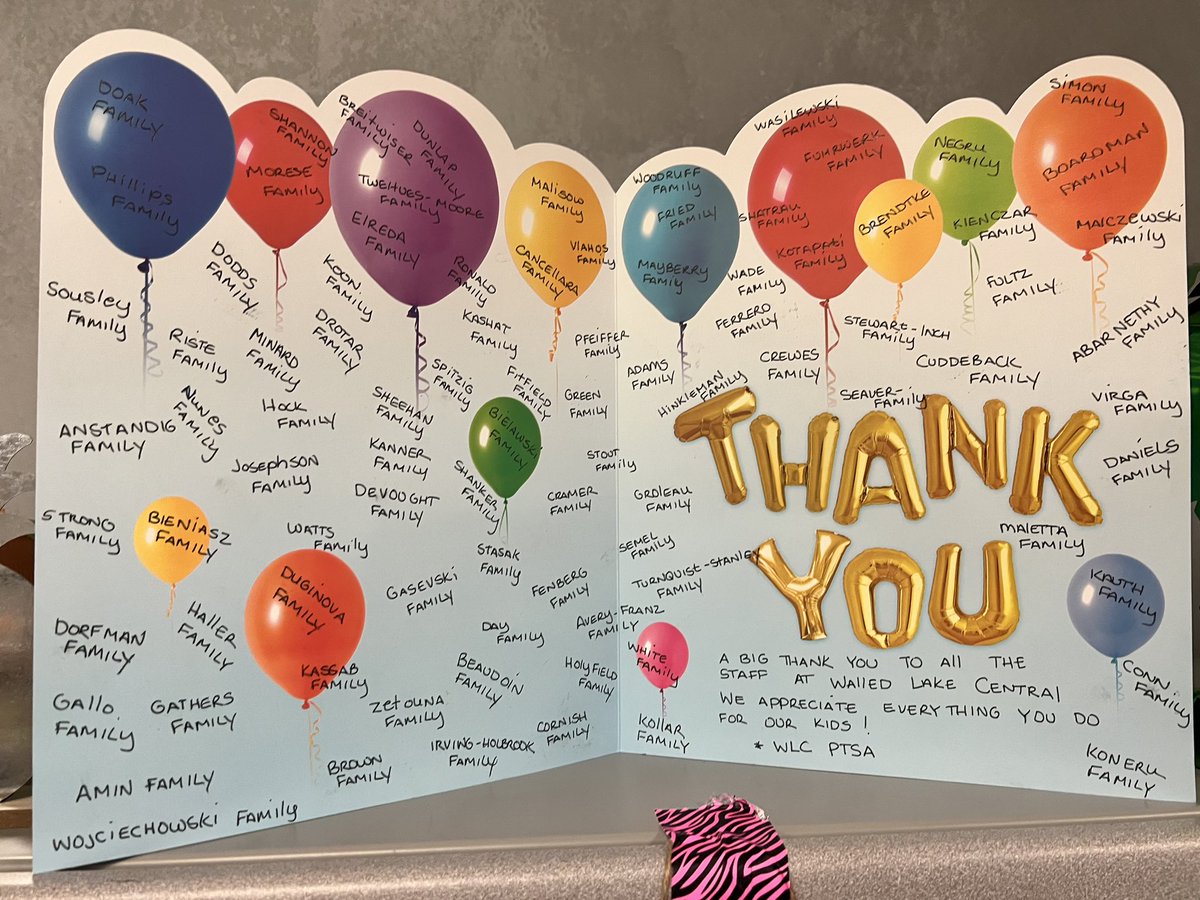 DOAK
FAMILY
Phillips
Family
SHANNON
FAMILY
MORESE
FAMILY
BREITWISER
FAMILY
DUNLAP
FAMILY
TWEHUES-MOORE
FAMILY
EIREDA
FAMILY
MALISOW
FAMILY
CANCELLARA
FAMILY
VLAHOS
FAMILY
Sousley
Family
DODDS
FAMILY
KOON
FAMILY
RONALD
FAMILY
RISTE
FAMILY
MINARD
FAMILY
DROTAR
FAMILY
KASHAT
FAMILY
PFEIFFER
FAMILY
NUNES
FAMILY
HOCK
FAMILY
SHEEHAN
FAMILY
SPITZIG
FAMILY
FITFIELD
FAMILY
GREEN
FAMILY
ANSTANDIG
FAMILY
JOSEPHSON
FAMILY
KANNER
FAMILY
BIELAWSKI
FAMILY
STOUT
FAMILY
DEVOUGHT
FAMILY
SHANKER
FAMILY
CRAMER
FAMILY
STRONG
FAMILY
BIENIASZ
FAMILY
WATTS
FAMILY
STASAK
FAMILY
DUGINOVA
FAMILY
GASEVSKI
FAMILY
FENBERG
FAMILY
DORFMAN
FAMILY
HALLER
FAMILY
DAY
FAMILY
AVERY-FRANZ
FAMILY
KASSAB
FAMILY
BEAUDOIN
FAMILY
HOLYFIELD
FAMILY
Gallo
Family
GATHERS
FAMILY
ZETOUNA
FAMILY
CORNISH
FAMILY
BROWN
FAMILY
IRVING-HOLBROOK
FAMILY
AMIN FAMILY
WOJCIECHOWSKI FAMILY
WOODRUFF
FAMILY
FRIED FAMILY
MAYBERRY
FAMILY
WASILEWSKI
FAMILY
FUHRWERK
FAMILY
SHATRAU
FAMILY
KOTAPATI
FAMILY
BRENDTKE
FAMILY
NEGRU
FAMILY
KLENCZAR
FAMILY
SIMON
FAMILY
BOARDMAN
FAMILY
MALCZEWSKI
FAMILY
WADE
FAMILY
FERRERO
FAMILY
FULTZ
FAMILY
ABARNETHY
FAMILY
STEWART-INCH
FAMILY
ADAMS
FAMILY
CREWES
FAMILY
CUDDEBACK
FAMILY
HINKLEMAN
FAMILY
SEAVER-
FAMILY
VIRGA
FAMILY
THANK
YOU
DANIELS
FAMILY
GROLEAU
FAMILY
MALETTA
FAMILY
SEMEL
FAMILY
TURNQUIST-STANLEY
FAMILY
KAUTH
FAMILY
WHITE
FAMILY
KOLLAR
FAMILY
CONN
FAMILY
A BIG THANK YOU TO ALL THE
STAFF AT WALLED LAKE CENTRAL
WE APPRECIATE EVERYTHING YOU DO
FOR OUR KIDS!
* WLC PTSA
KONERU
FAMILY